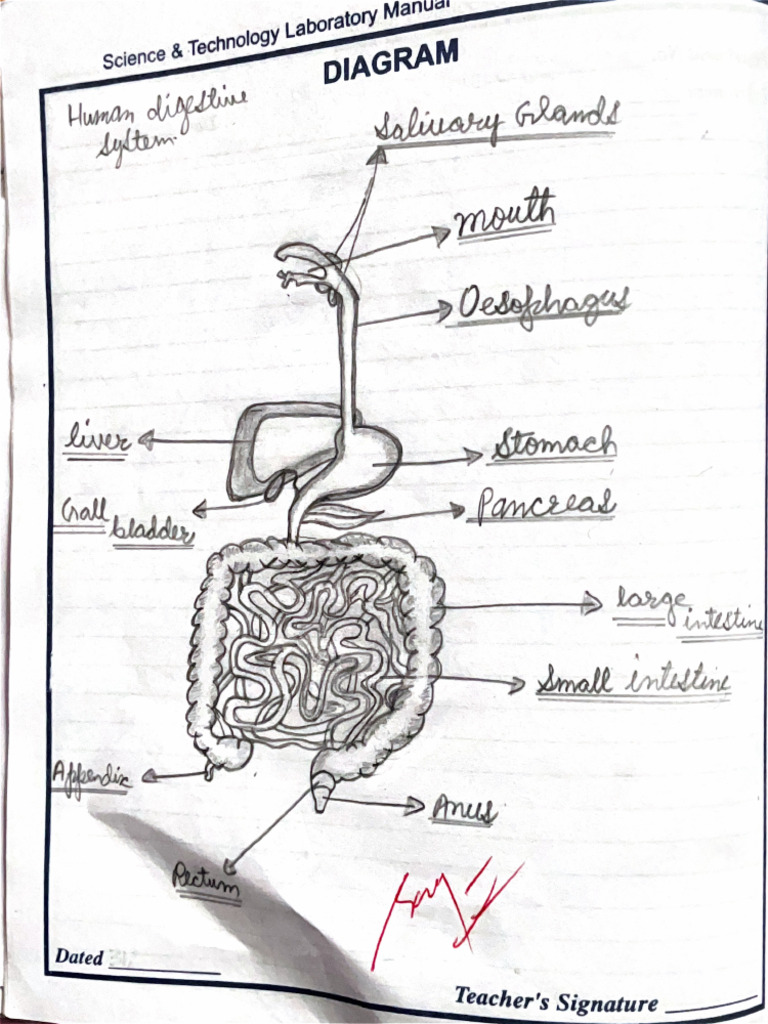 Science & Technology Laboratory Manual
DIAGRAM
Human digestive
system
Salivary Glands
mouth
Oesophagus
liver
Stomach
Gall
bladder
Pancreas
large
intestine
Small intestine
Appendix
Anus
Rectum
Dated
Teacher's Signature